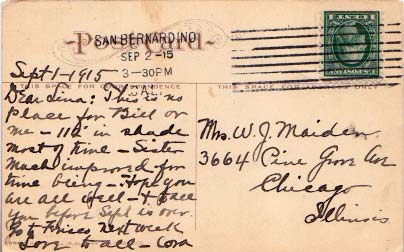 SAN BERNARDINO
Post Card
SEP 2-15
3-30PM
CAL.
Sept 1-1915
THIS SPACE FOR
Dear Lina: This is no
Place for Bill or
me - 112 in shade
most of time - Sister
Much improved for
time being - Hope you
are all well - +
you before Sept is over.
Frisco next week
Love to all - Cora
Mrs. W. J. Maiden
3664 Pine Grove Ave
Chicago
Illinois